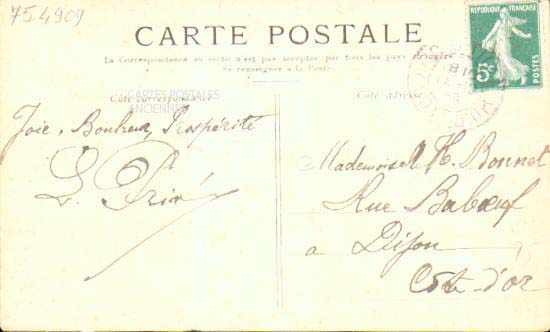 754909
CARTE POSTALE
La Correspondance au recto n'est pas acceptée par tous les pays étrangers
Se renseigner à la Poste.
REPUBLIQUE FRANÇAISE
5c
CARTES POSTALES
ANCIENNES
Côté correspondance
Côté adresse
Joie, Bonheur, Prospérité
L. Privé
Mademoiselle H. Bonnet
Rue Babœuf
à Dijon
Côte-d'or